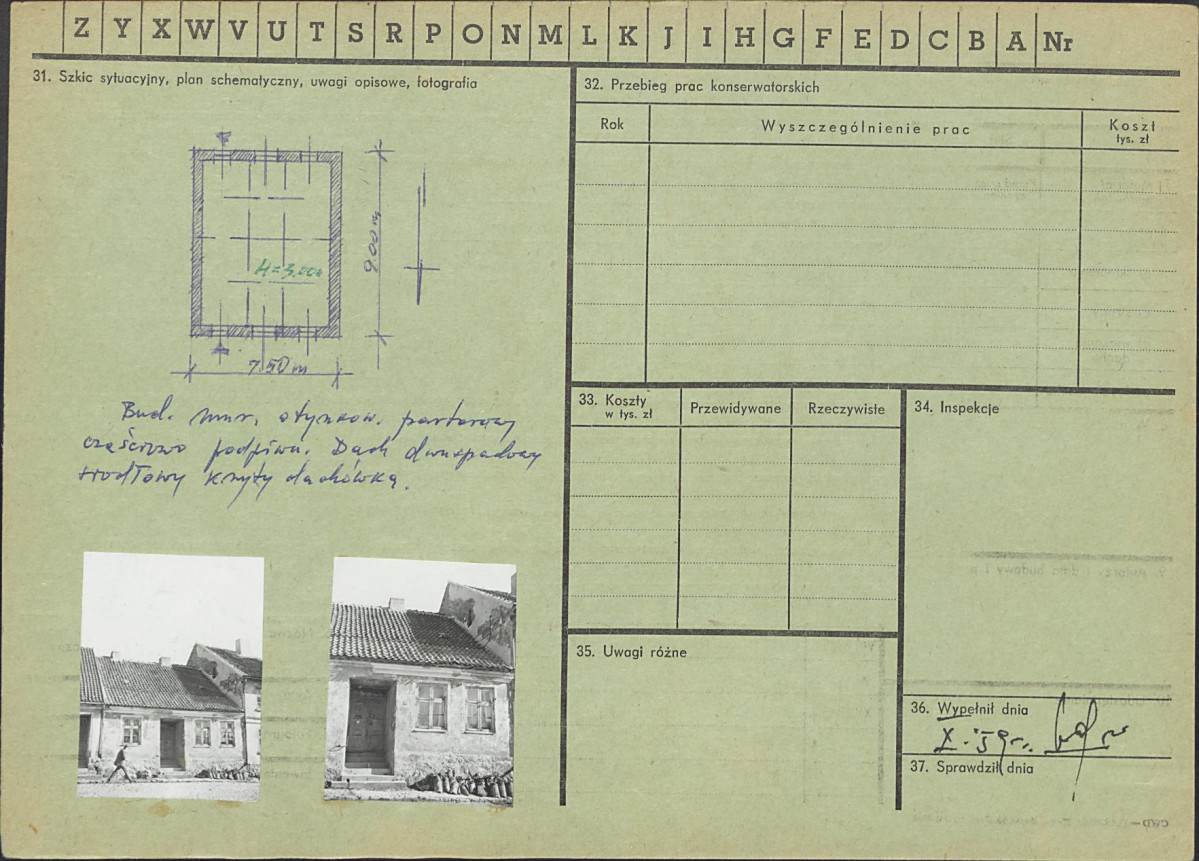 Z Y X W V U T S R P O N M L K J I H G F E D C B A Nr
31. Szkic sytuacyjny, plan schematyczny, uwagi opisowe, fotografia
H=3.00m
9.00 m
7.50 m
Bud. mur. otynkow. parterowy
częściowo podpiwn. Dach dwuspadowy
siodłowy kryty dachówką.
32. Przebieg prac konserwatorskich
Rok
Wyszczególnienie prac
Koszt
tys. zł
33. Koszty
w tys. zł
Przewidywane
Rzeczywiste
34. Inspekcje
35. Uwagi różne
36. Wypełnił dnia
X. 59 r.
37. Sprawdził dnia